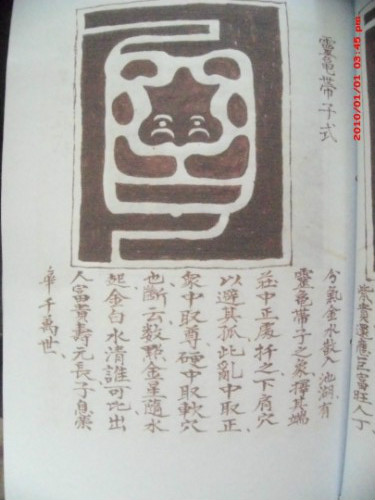 2010/01/01 03:45 pm
靈龜帶子式
貴還應巨富旺人丁
分氣金水散入池湖有
靈龜帶子之象擇其端
莊中正處扦之下肩穴
以避其孤、此亂中取正
衆中取尊、硬中取軟穴
也、斷云数點金星隨水
起金白水清誰可比出
人富貴壽元長子息榮
華千萬世、